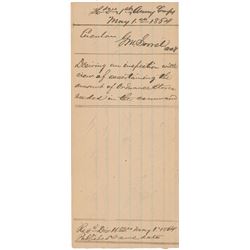 Hd Qrs 1st Army Corps
May 1st 1864
Circular
GM Sorrel
aag
Desiring an inspection with
view of ascertaining the
amount of Ordnance Stores
needed in the command
May 1st 1864
Published same date